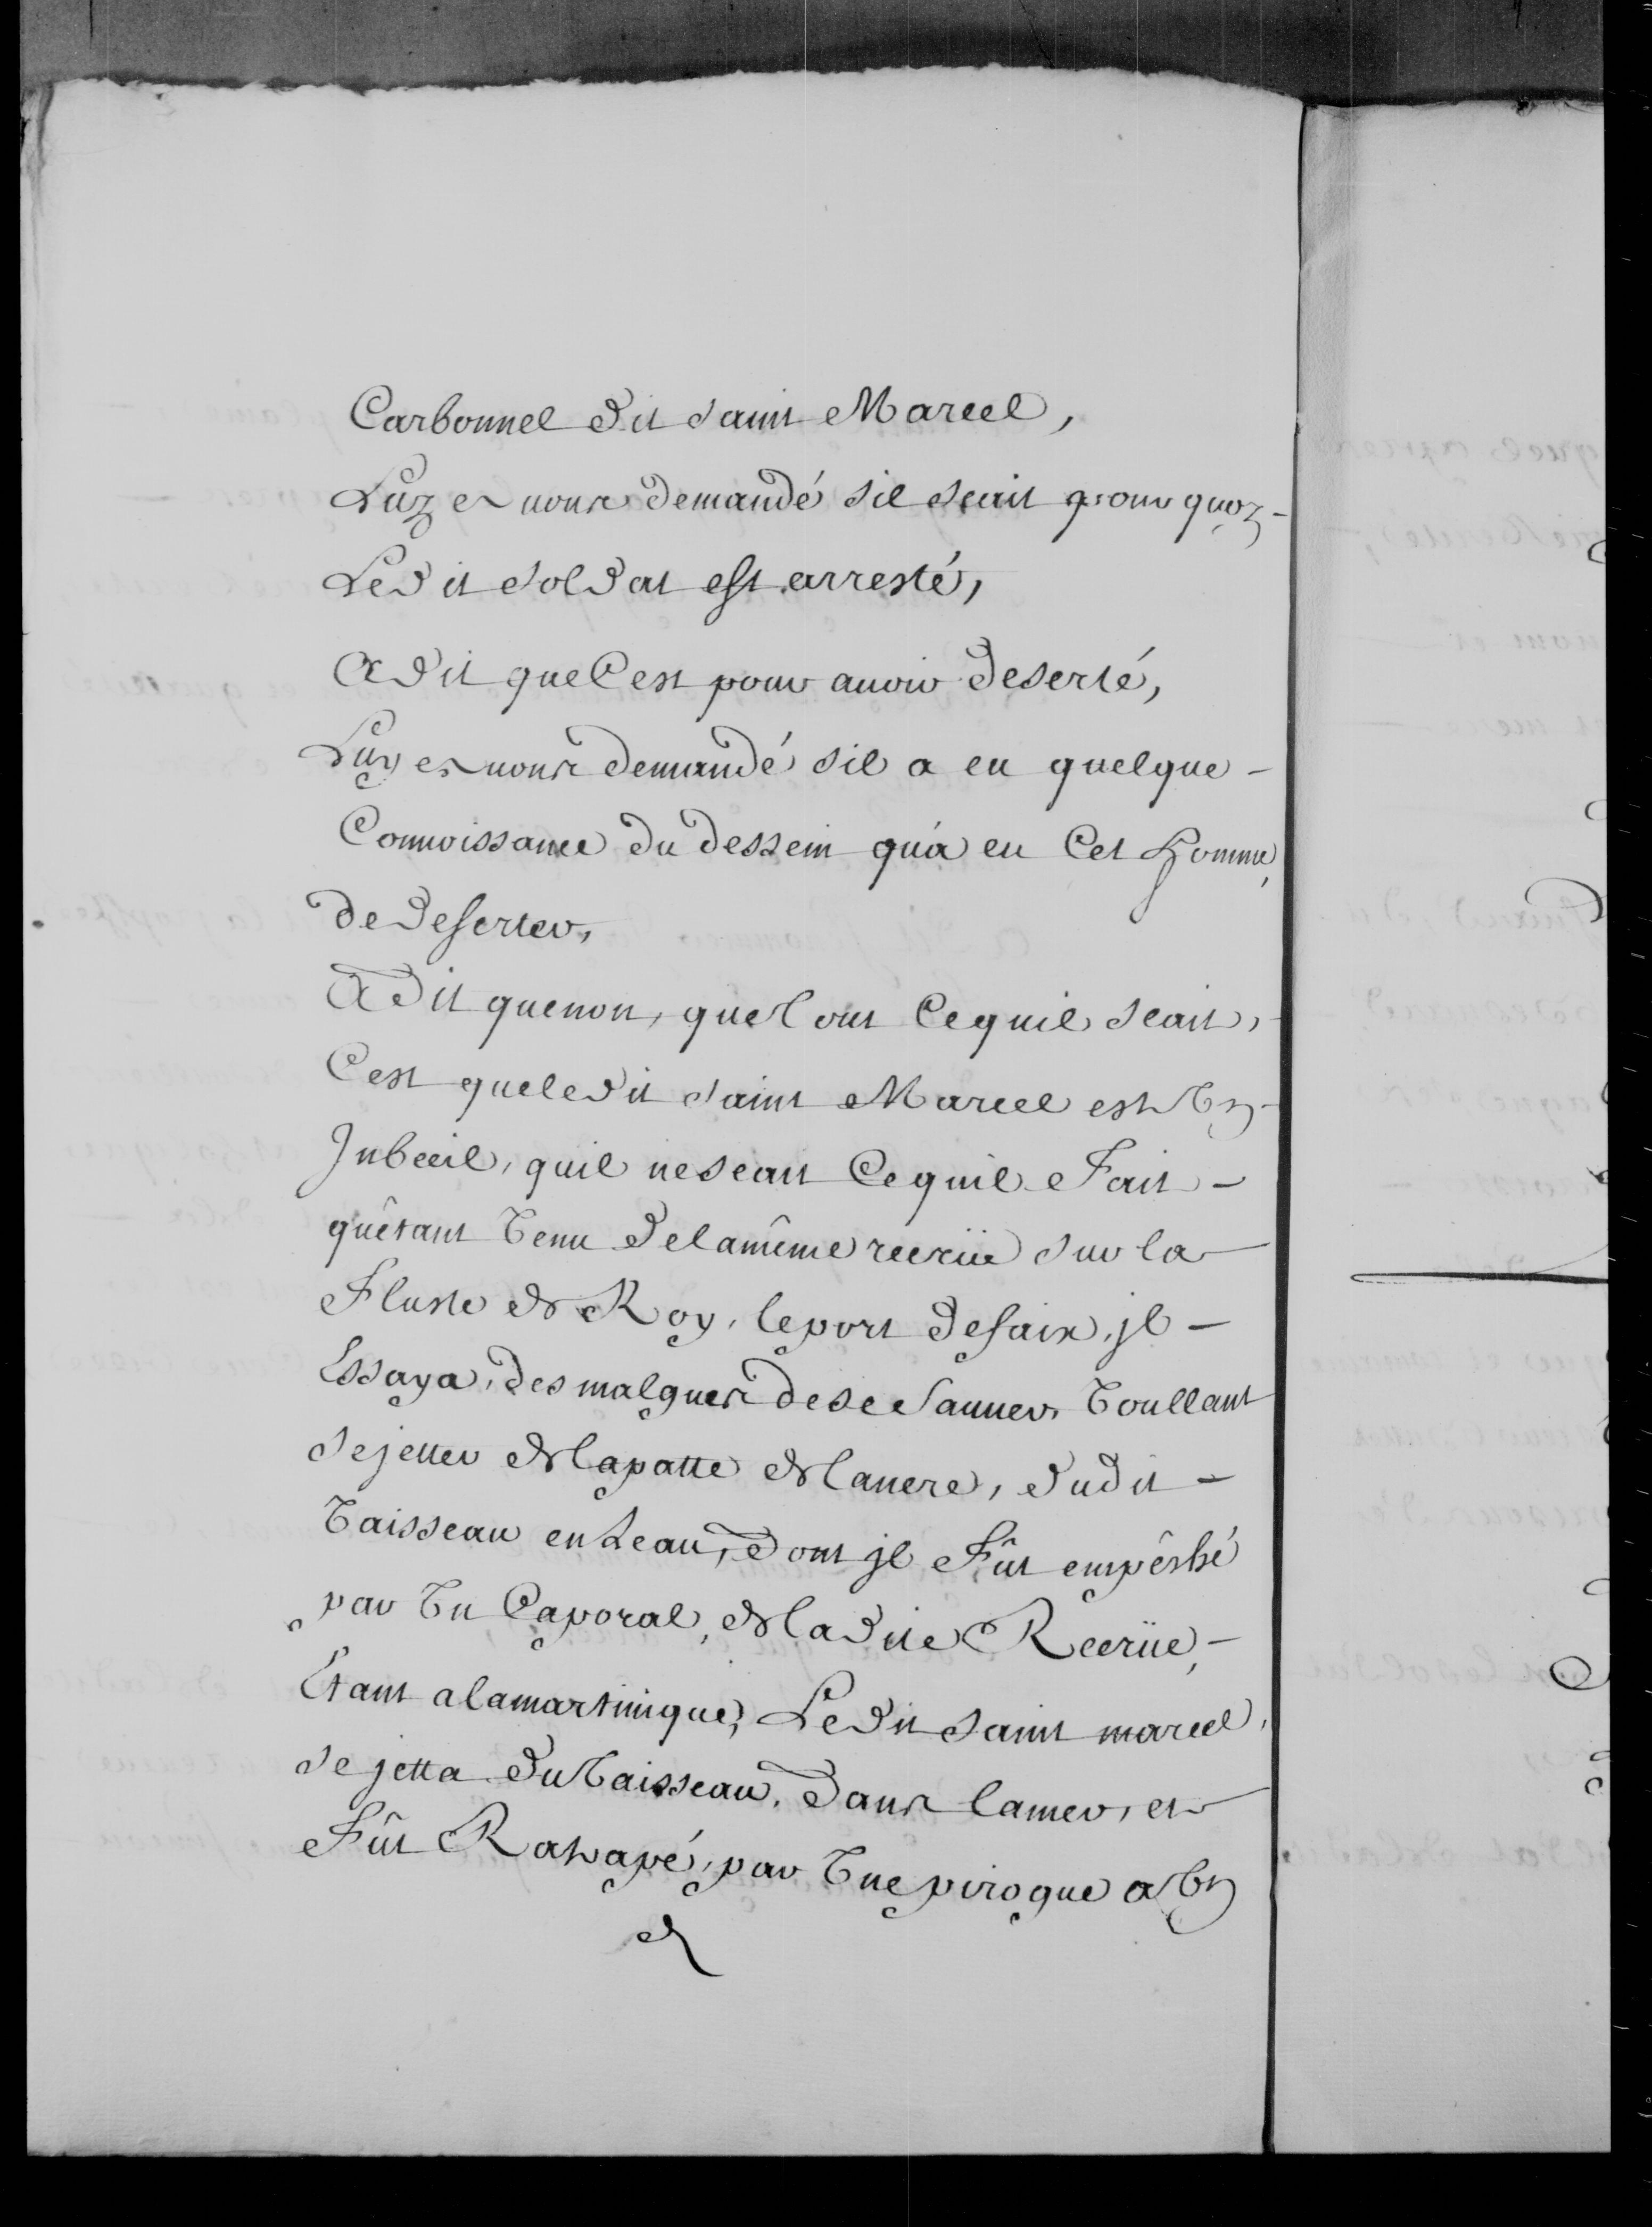 Carbonnel dit saint Marcel,
Luy avons demandé sil scait pourquoy
Ledit soldat est arresté,
A dit que C'est pour auoir deserté,
Luy avons demandé sil a eu quelque
Connoissance du dessein qu'a eu Cet homme,
de deserter,
A dit que non, que tout Cequil scait,
C'est queledit saint Marcel est Un
Inbecil, quil nescait Cequil Fait
qu'étant Venu delamême recrüe sur la
Fluste du Roy, leport desaix, jl
Essaya, des malgues dese sauuer, Voullant
se jetter de lapatte de lancre, dudit
Vaisseau en Leau, dont jl Fût empêché
par Un Caporal, de ladite Recrüe,
Etant alamartinique, Ledit saint marcel,
se jetta du Vaisseau, dans lamer, et
Fût Ratrapé, par Une pirogue a Un